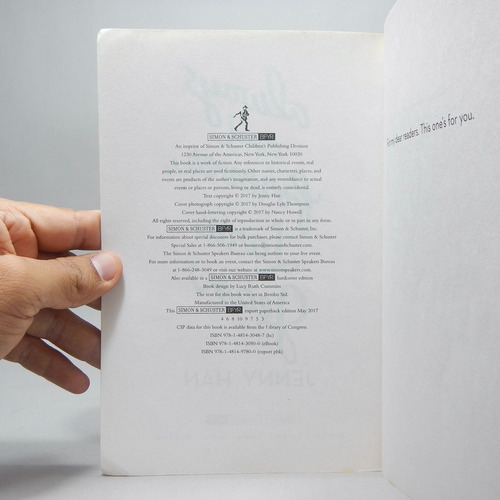 SIMON & SCHUSTER BFYR
An imprint of Simon & Schuster Children's Publishing Division
1230 Avenue of the Americas, New York, New York 10020
This book is a work of fiction. Any references to historical events, real
people, or real places are used fictitiously. Other names, characters, places, and
events are products of the author's imagination, and any resemblance to actual
events or places or persons, living or dead, is entirely coincidental.
Text copyright © 2017 by Jenny Han
Cover photograph copyright © 2017 by Douglas Lyle Thompson
Cover hand-lettering copyright © 2017 by Nancy Howell
All rights reserved, including the right of reproduction in whole or in part in any form.
SIMON & SCHUSTER BFYR is a trademark of Simon & Schuster, Inc.
For information about special discounts for bulk purchases, please contact Simon & Schuster
Special Sales at 1-866-506-1949 or business@simonandschuster.com.
The Simon & Schuster Speakers Bureau can bring authors to your live event.
For more information or to book an event, contact the Simon & Schuster Speakers Bureau
at 1-866-248-3049 or visit our website at www.simonspeakers.com.
Also available in a SIMON & SCHUSTER BFYR hardcover edition
Book design by Lucy Ruth Cummins
The text for this book was set in Bembo Std.
Manufactured in the United States of America
This SIMON & SCHUSTER BFYR export paperback edition May 2017
4 6 8 10 9 7 5 3
CIP data for this book is available from the Library of Congress.
ISBN 978-1-4814-3048-7 (hc)
ISBN 978-1-4814-3050-0 (eBook)
ISBN 978-1-4814-9780-0 (export pbk)
JENNY HAN
my dear readers. This one's for you.